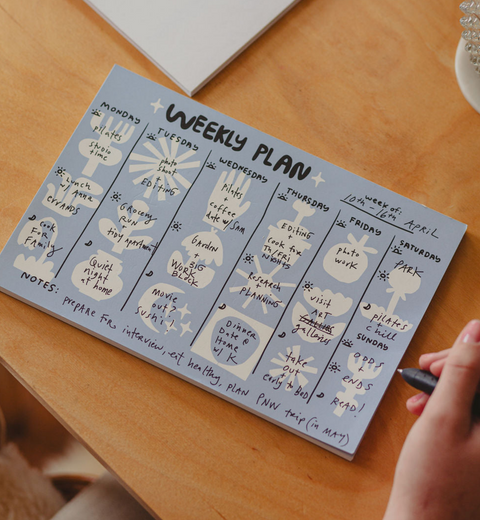 WEEKLY PLAN
week of:
10th - 16th APRIL
MONDAY
pilates
studio
time
Lunch
w/ Anna
errands
Cook
For
Family
TUESDAY
photo
shoot
+
EDITING
Grocery
RUN
+
tidy apartment
Quiet
night at
home
WEDNESDAY
Pilates
+
coffee
date w/ Sam
GARDEN
BIG
WORK
BLOCK
Movie
out?
Sushi!
THURSDAY
EDITING
+
cook for
TH/FRI
NIGHTS
Research
+
PLANNING
Dinner
Date @
Home
w/ K
FRIDAY
photo
work
visit
ART
galleries
take
out
+
early to BED
SATURDAY
PARK
pilates
+
chill
SUNDAY
ODDS
+
ENDS
READ!
NOTES: prepare for interview, eat healthy, PLAN PNW trip (in MAY)